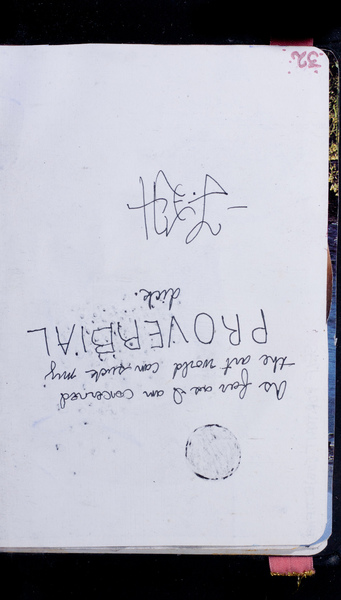 As far as I am concerned
the art world can suck my
PROVERBIAL
dick.
32